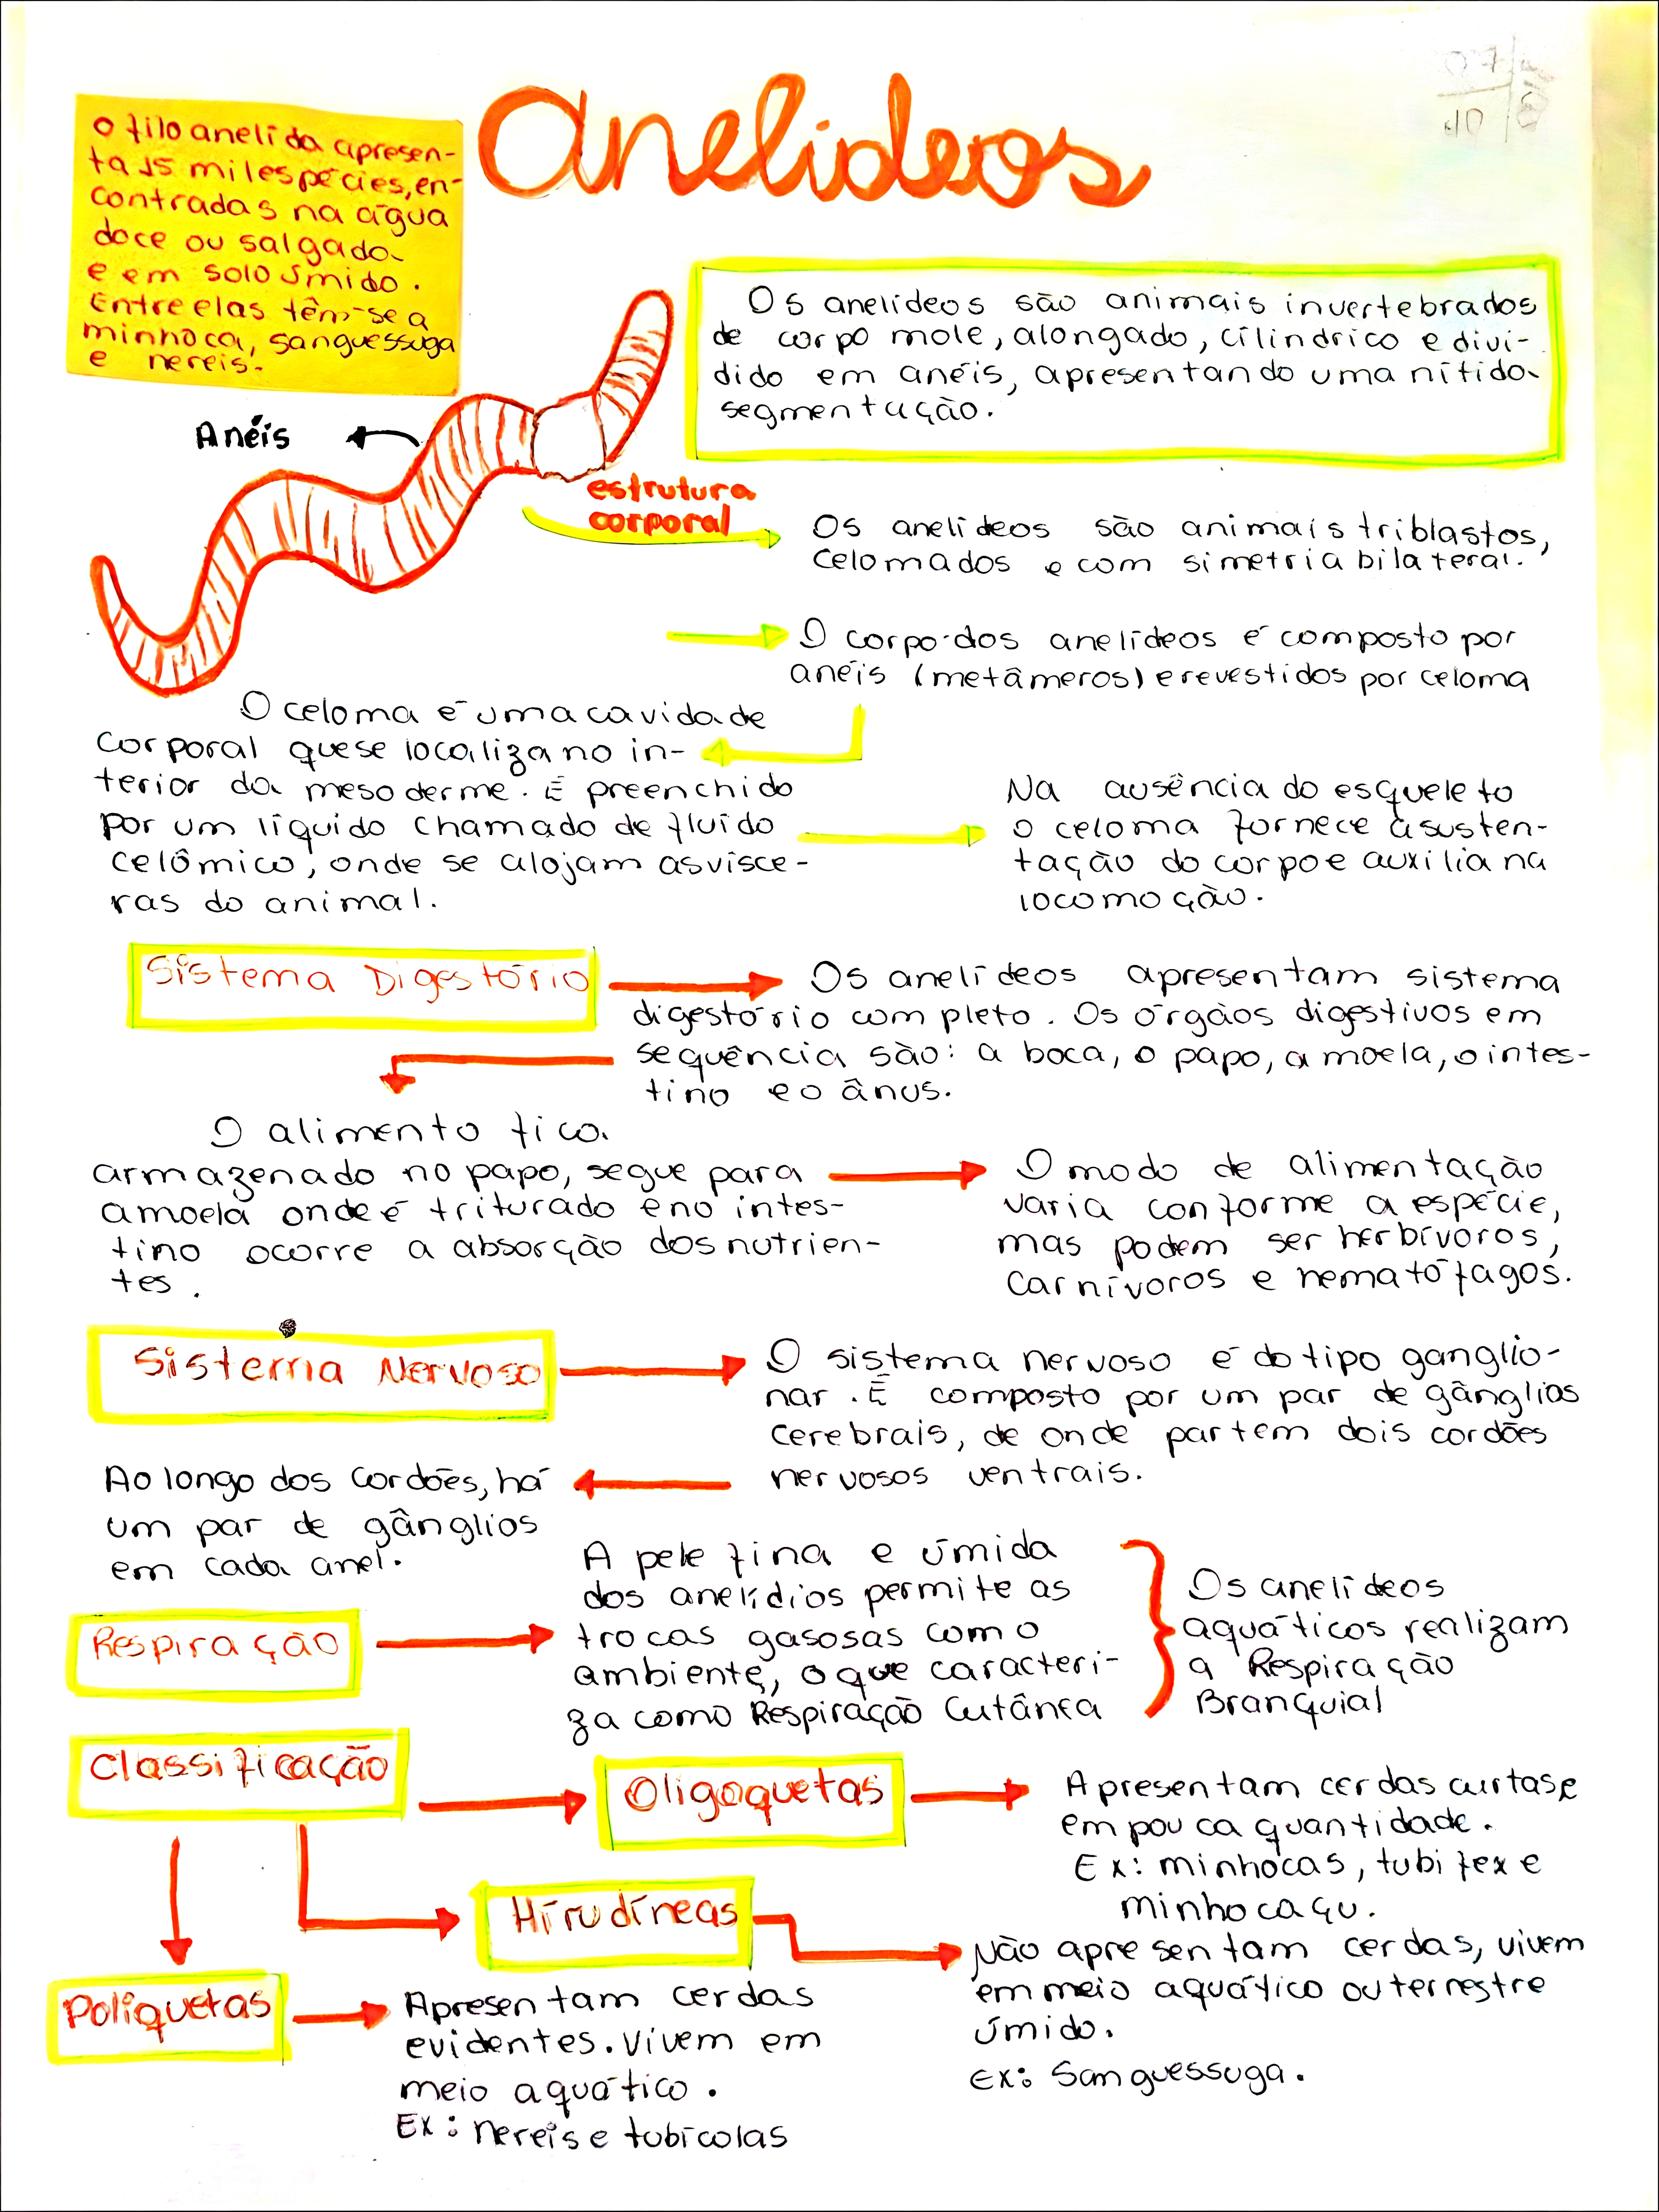 Anelídeos
O filo anelida apresen-
ta 15 mil espécies, en-
contradas na água
doce ou salgada
e em solo úmido.
Entre elas têm-se a
minhoca, sanguessuga
e nereis.
Os anelídeos são animais invertebrados
de corpo mole, alongado, cilíndrico e divi-
dido em anéis, apresentando uma nítida
segmentação.
Anéis
estrutura
corporal
Os anelídeos são animais triblastos,
celomados e com simetria bilateral.
O corpo dos anelídeos é composto por
anéis (metâmeros) e revestidos por celoma
O celoma é uma cavidade
corporal que se localiza no in-
terior da mesoderme. É preenchido
por um líquido chamado de fluído
celômico, onde se alojam as vísce-
ras do animal.
Na ausência do esqueleto
o celoma fornece a susten-
tação do corpo e auxilia na
locomoção.
Sistema Digestório
Os anelídeos apresentam sistema
digestório completo. Os órgãos digestivos em
sequência são: a boca, o papo, a moela, o intes-
tino e o ânus.
O alimento fica
armazenado no papo, segue para
a moela onde é triturado e no intes-
tino ocorre a absorção dos nutrien-
tes.
O modo de alimentação
varia conforme a espécie,
mas podem ser herbívoros,
carnívoros e hematófagos.
Sistema Nervoso
O sistema nervoso é do tipo ganglio-
nar. É composto por um par de gânglios
cerebrais, de onde partem dois cordões
nervosos ventrais.
Ao longo dos cordões, há
um par de gânglios
em cada anel.
Respiração
A pele fina e úmida
dos anelídios permite as
trocas gasosas com o
ambiente, o que caracteri-
za como Respiração Cutânea
Os anelídeos
aquáticos realizam
a Respiração
Branquial
Classificação
Oligoquetas
Apresentam cerdas curtas e
em pouca quantidade.
Ex: minhocas, tubifex e
minhocaçu.
Hirudíneas
Não apresentam cerdas, vivem
em meio aquático ou terrestre
úmido.
Ex: Sanguessuga.
Poliquetas
Apresentam cerdas
evidentes. Vivem em
meio aquático.
Ex: nereis e tubícolas